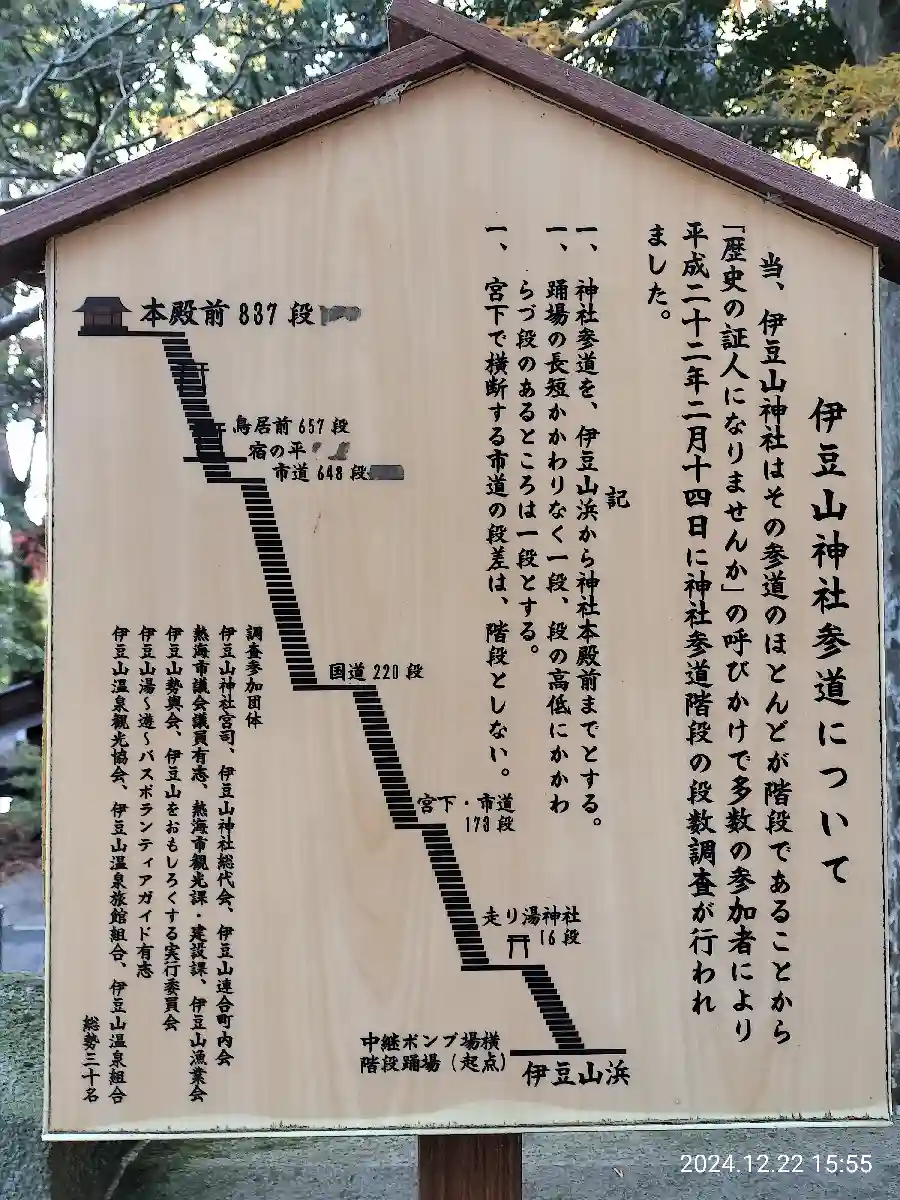 伊豆山神社参道について
当、伊豆山神社はその参道のほとんどが階段であることから
「歴史の証人になりませんか」の呼びかけで多数の参加者により
平成二十二年二月十四日に神社参道階段の段数調査が行われ
ました。
記
一、神社参道を、伊豆山浜から神社本殿前までとする。
一、踊場の長短かかわりなく一段、段の高低にかかわ
らづ段のあるところは一段とする。
一、宮下で横断する市道の段差は、階段としない。
本殿前 837 段
鳥居前 657 段
宿の平
市道 648 段
国道 220 段
宮下・市道
173 段
走り湯神社
16 段
中継ポンプ場横
階段踊場(起点)
伊豆山浜
調査参加団体
伊豆山神社宮司、伊豆山神社総代会、伊豆山連合町内会
熱海市議会議員有志、熱海市観光課・建設課、伊豆山漁業会
伊豆山勢興会、伊豆山をおもしろくする実行委員会
伊豆山湯~遊~バスボランティアガイド有志
伊豆山温泉観光協会、伊豆山温泉旅館組合、伊豆山温泉組合
総勢三十名
2024.12.22 15:55